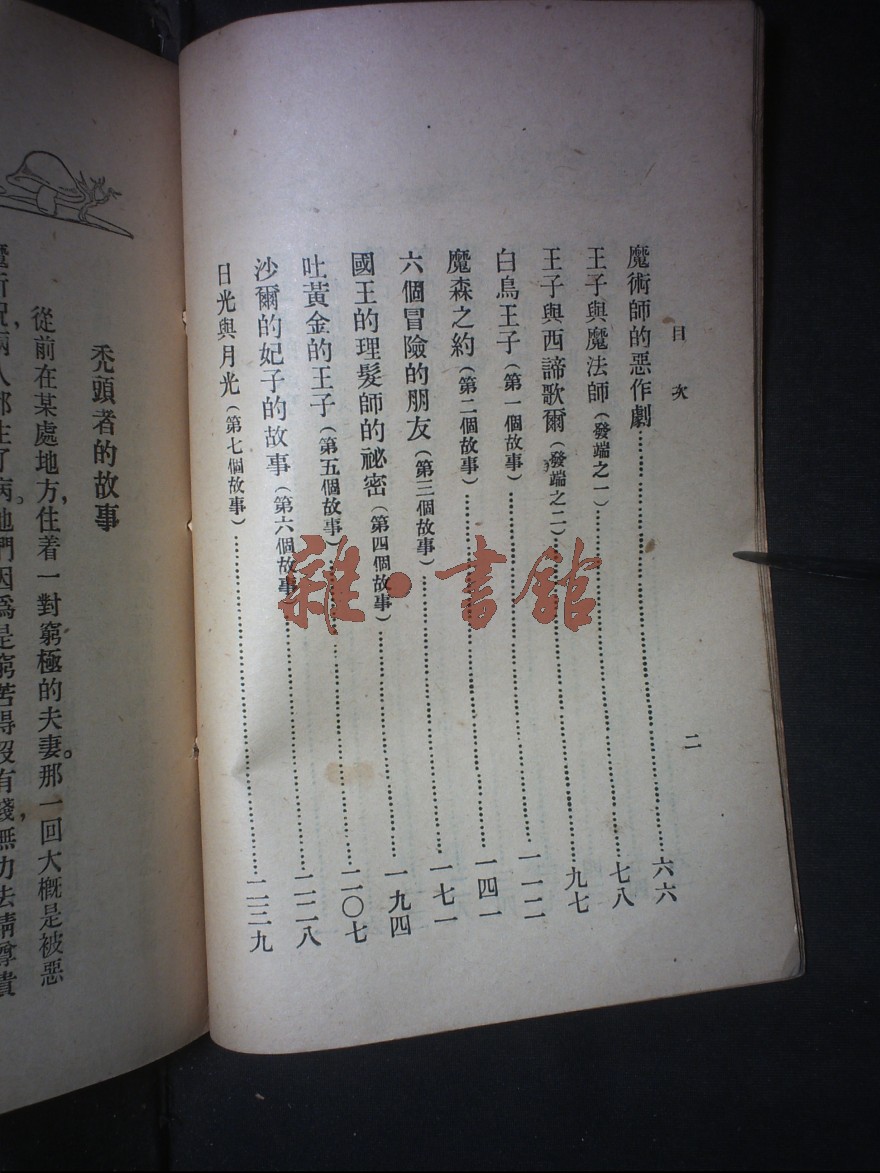 目次
二
魔術師的惡作劇……六六
王子與魔法師（發端之一）……七八
王子與西諦歌爾（發端之二）……九七
白鳥王子（第一個故事）……一一二
魔森之約（第二個故事）……一四一
六個冒險的朋友（第三個故事）……一七一
國王的理髮師的祕密（第四個故事）……一九四
吐黃金的王子（第五個故事）……二〇七
沙爾的妃子的故事（第六個故事）……二二八
日光與月光（第七個故事）……二三九
雜·書館
禿頭者的故事
從前在某處地方，住着一對窮極的夫妻。那一回大概是被惡
兩人都生了病。他們因爲是窮苦得沒有錢，無力去請尊貴